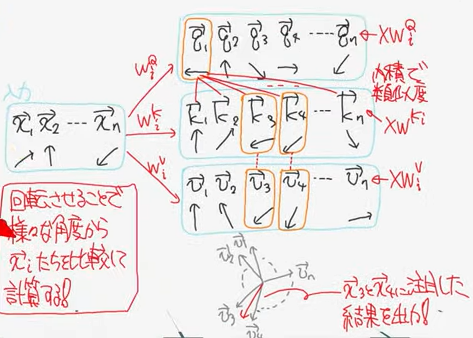 q⃗₁ q⃗₂ q⃗₃ q⃗₄ ---- q⃗ₙ ← XWᵢQ
WᵢQ
内積で
類似度
入力
x⃗₁ x⃗₂ --- x⃗ₙ
WᵢK
k⃗₁ k⃗₂ k⃗₃ k⃗₄ ---- k⃗ₙ
XWKi
Wᵢv
v⃗₁ v⃗₂ v⃗₃ v⃗₄ --- v⃗ₙ ← XWᵢv
回転させることで
様々な角度から
x⃗ᵢたちを比較して
計算する!
v⃗₂ v⃗₁ v⃗ₙ
v⃗₃ v⃗₄
x⃗₃とx⃗₄に注目した
結果を出力!